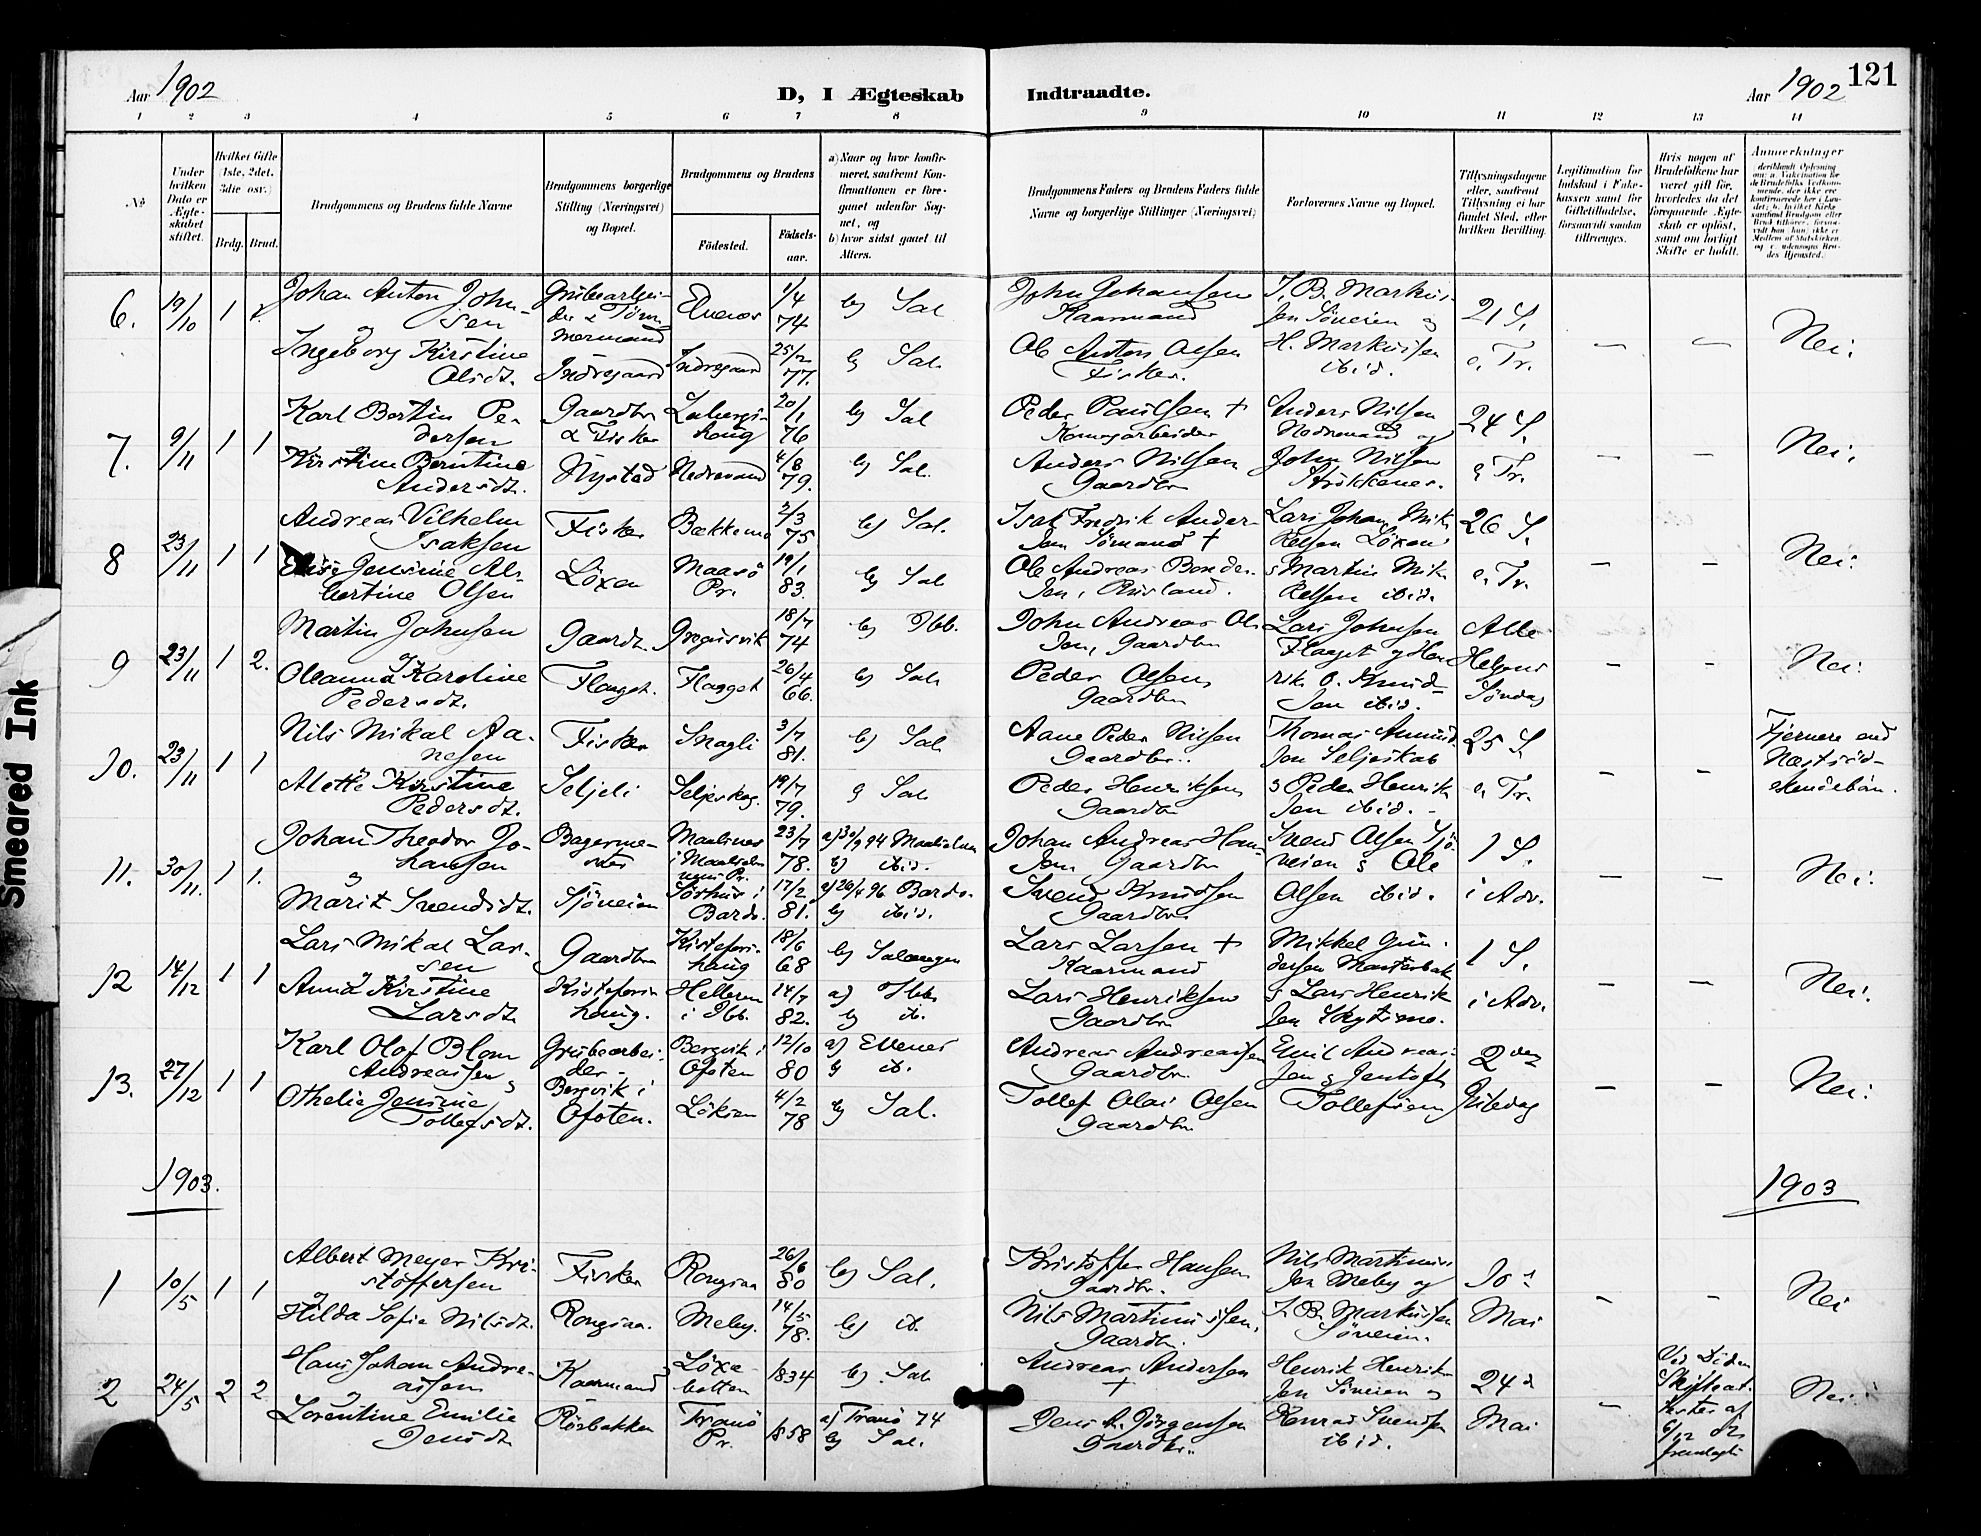 Aar 1902
D, I Ægteskab Indtraadte.
Aar 1902 121
1 2 3 4 5 6 7 8 9 10 11 12 13 14
No.
Under hvilken Dato er Ægteskabet stiftet.
Hvilket Gifte (1ste, 2det, 3die osv.)
Brdg. Brud.
Brudgommens og Brudens fulde Navne
Brudgommens borgerlige Stilling (Næringsvei) og Bopæl.
Brudgommens og Brudens
Födested. Födselsaar.
a) Naar og hvor konfirmeret, saafremt Konfirmationen er foregaaet udenfor Sognet, og
b) hvor sidst gaaet til Alters.
Brudgommens Faders og Brudens Faders fulde Navne og borgerlige Stillinger (Næringsvei)
Forlovernes Navne og Bopæl.
Tillysningsdagene eller, saafremt Tillysning ei har fundet Sted, efter hvilken Bevilling.
Legitimation for Indskud i Enkekassen samt for Giftetilladelse, forsaavidt saadan tiltrænges.
Hvis nogen af Brudefolkene har været gift før, hvorledes da det foregaaende Ægteskab er oplöst, samt om lovligt Skifte er holdt.
Anmerkninger
6. 19/10 1 1.
Johan Anton Johnsen
Grubearbeider & Tömmermand
Evenes 1/4 74 b) Sal
John Johansen Kaarmand
I. B. Markussen Söveien og
21 S.
Ingeborg Kirstine Olsdt.
Indregaard Indregaard 25/2 77. b) Sal.
Ole Anton Olsen Fisker.
H. Markussen ibid.
e. Tr. — — Nei.
7. 9/11 1 1
Karl Bertin Pedersen
Gaardbr & Fisker
20/1 76 b) Sal
Peder Paulsen +
Anders Nilsen Nedrevand og
24 S.
Kirstine Berntine Andersdt.
Nystad Nedrevand 4/8 79. b) Sal.
Anders Nilsen Gaardbr
John Nilsen
e. Tr. — — Nei.
8 23/11 1 1
Andreas Vilhelm Isaksen
Fisker Bækkemo 2/3 75 b) Sal.
Isak Fredrik Andersen Sömand +
Lars Johan Mikkelsen Löxen
26 S.
Elise Jensine Albertine Olsen
Löxen Maasö Pr. 19/1 83. b) Sal
Ole Andreas
& Martin Mikkelsen ibid.
e. Tr. — — Nei.
9 23/11 1 2.
Martin Johnsen
Gaardb. Gregusvik 18/7 74 b) Ibb.
John Andreas Olsen, Gaardbr
Lars Johnsen Flaaget og Henrik O. Knudsen ibid.
Alle Helgens Söndag
Oleanna Karoline Pedersdt.
Flaaget. Flaaget 26/4 66. b) Sal.
Peder Olsen Gaardbr
— — Nei.
10. 23/11 1 1
Nils Mikal Aanesen
Fisker 3/7 81. b) Sal
Aane Peder Nilsen Gaardbr.
Thomas Amundsen Seljeskab
25 S.
Alette Kirstine Pedersdt.
Seljeli Seljeskog. 19/7 79. b) Sal
Peder Henriksen Gaardbr
& Peder Henriksen ibid.
e. Tr. — —
Fjernere end Næstsödskendebörn.
11. 30/11. 1 1.
Johan Theodor Johansen
Bagermester
23/7 78. a) 30/9 94 Maalselven b) ibid.
Johan Andreas Hansen Gaardbr
Svend Olsen Sjöveien & Ole
1 S.
Marit Svendsdt.
Sjöveien Sörhus i Bardo. 17/2 81. a) 26/4 96 Bardo. b) ibid.
Svend Knudsen Gaardbr
Olsen ibid.
i Adv. — — Nei.
12 14/12 1 1
Lars Mikal Larsen
Gaardbr Kistefoshaug 18/6 68 b) Salangen
Lars Larsen + Kaarmand
Mikkel Gundersen
1 S.
Anna Kirstine Larsdt.
Kistefoshaug. Helleren i Ibb. 14/7 82. a) Ibb b) ib.
Lars Henriksen Gaardbr
& Lars Henriksen
i Adv. — — Nei.
13. 27/12 1 1
Karl Olof Blom Andreassen &
Grubearbeider. Bergvik i Ofoten 12/10 80 a) Evenes b) ib.
Andreas Andreassen Gaardbr.
Emil Andreassen & Jentoft
2den
Othelie Jensine Tollefsdt.
Bergvik i Ofoten. Löksen 4/2 78 b) Sal.
Tollef Olai Olsen Gaardbr
Tollefsen
Juledag — — Nei.
1903. 1903
1 10/5 1 1
Albert Meyer Kristoffersen
Fisker 26/6 80 b) Sal.
Kristoffer Hansen Gaardbr.
Nils Martinussen Meby og
10s
Hilda Sofie Nilsdt.
Meby. 14/5 78. b) ib.
Nils Martinussen, Gaardbr.
I. B. Markussen Söveien.
Mai — — Nei
2 24/5 2 2
Hans Johan Andreassen
Kaarmand Löxebotten 1834 b) Sal
Andreas Andersen +
Henrik Henriksen Söveien og
24d
Lorentine Emilie Jensdt
Rörbakken Tranö Pr. 1858 a) Tranö 74 b) Sal.
Jens A. Jörgensen Gaardbr.
Konrad Svendsen ibid.
Mai —
Ved Döden Skifteattester af 6/12 02 fremlagt
Nei.
Smeared Ink